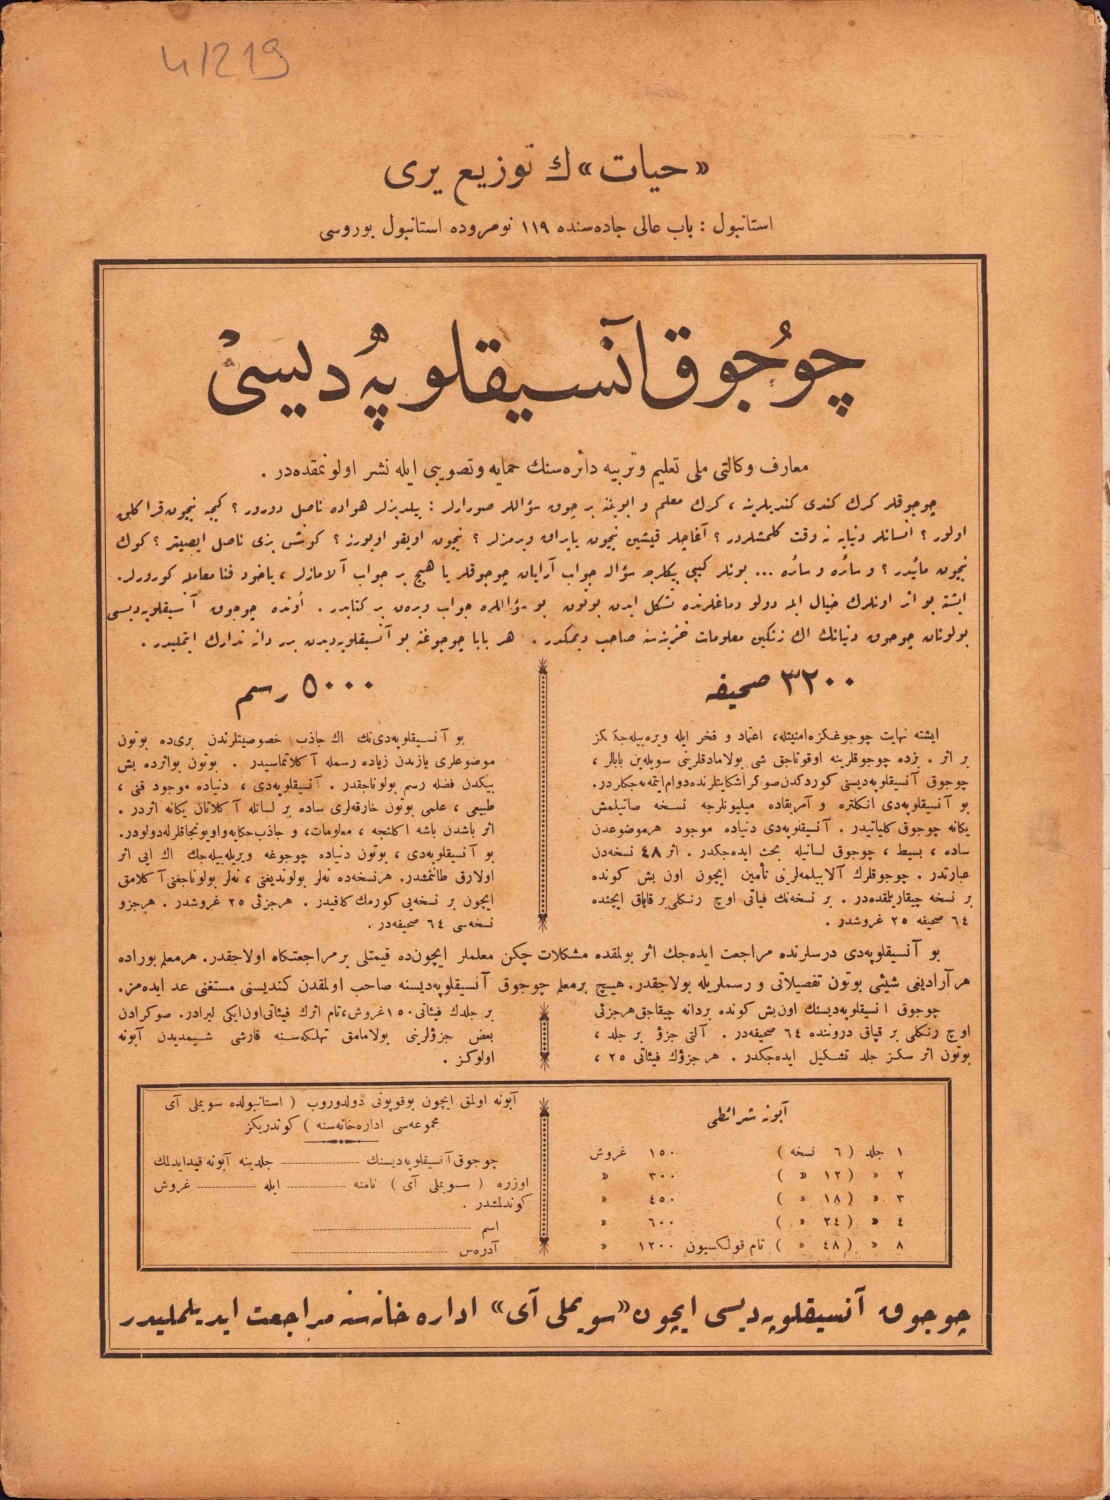 4/219
«حيات» ك توزيع يرى
استانبول : باب عالى جاده‌سنده ١١٩ نومروده استانبول بوروسى
چوجوق آنسيقلوپه‌ديسى
معارف وكالتى ملى تعليم وتربيه دائره‌سنك حمايه وتصويبى ايله نشر اولونمقده‌در .
چوجوقلر كرك كندى كنديلرينه ، كرك معلم و ابوينه بر چوق سؤاللر صورارلر : ييلديزلر هواده ناصل دورور ؟ كيجه نيچون قراكلق
اولور ؟ انسانلر دنيايه نه وقت كلمشلردر ؟ آغاچلر قيشين نيچون ياپراق ويرمزلر ؟ نيچون اويقو اويورز ؟ كونش بزى ناصل ايصيتير ؟ كوك
نيچون مائيدر ؟ و سائره و سائره ... بونلر كبى بيكلرجه سؤاله جواب آرايان چوجوقلر يا هيچ بر جواب آلامازلر ، ياخود فنا معامله كورورلر.
ايشته بو اثر اونلرك خيال ايله دولو دماغلرنده تشكل ايدن بوتون بو سؤاللره جواب ويرن بر كتابدر . اونده چوجوق آنسيقلوپه‌ديسى
بولونان چوجوق دنيانك اك زنكين معلومات خزينه‌سنه صاحب ديمكدر . هر بابا چوجوغنه بو آنسيقلوپه‌ديدن برر دانه تدارك ايتمليدر .
٣٢٠٠ صحيفه
ايشته نهايت چوجوغكزه امنيتله، اعتماد و فخر ايله ويره‌بيله‌جككز
بر اثر . بزده چوجوقلرينه اوقوتاجق شى بولامادقلرينى سويله‌ين بابالر ،
چوجوق آنسيقلوپه‌ديسنى كوردكدن صوكرا شكايتلرنده دوام ايتمه‌يه‌جكلردر.
بو آنسيقلوپه‌دى انكلتره و آمريقاده ميليونلرجه نسخه صاتيلمش
يكانه چوجوق كلياتيدر . آنسيقلوپه‌دى دنياده موجود هرموضوعدن
ساده ، بسيط ، چوجوق لسانيله بحث ايده‌جكدر . اثر ٤٨ نسخه‌دن
عبارتدر . چوجوقلرك آلابيلمه‌لرينى تأمين ايچون اون بش كونده
بر نسخه چيقاريلمقده‌در . بر نسخه‌نك فياتى اوچ رنكلى بر قاپاق ايچنده
٦٤ صحيفه ٢٥ غروشدر .
٥٠٠٠ رسم
بو آنسيقلوپه‌دى‌نك اك جاذب خصوصيتلرندن برى‌ده بوتون
موضوعلرى يازيدن زياده رسمله آكلاتماسيدر . بوتون بو اثرده بش
بيكدن فضله رسم بولوناجقدر . آنسيقلوپه‌دى ، دنياده موجود فنى ،
طبيعى ، علمى بوتون خارقه‌لرى ساده بر لسانله آكلاتان يكانه اثردر .
اثر باشدن باشه اكلنجه ، معلومات، و جاذب حكايه و اويونجاقلرله دولودر.
بو آنسيقلوپه‌دى ، بوتون دنياده چوجوغه ويريله‌بيله‌جك اك ايى اثر
اولارق طانتمشدر. هرنسخه‌ده نه‌لر بولونديغنى ، نه‌لر بولوناجغنى آكلامق
ايچون بر نسخه‌يى كورمك كافيدر . هرجزئى ٢٥ غروشدر . هرجزو
نسخه‌سى ٦٤ صحيفه‌در .
بو آنسيقلوپه‌دى درسلرنده مراجعت ايده‌جك اثر بولمقده مشكلات چكن معلملر ايچون‌ده قيمتلى بر مراجعتكاه اولاجقدر. هرمعلم بوراده
هر آراديغى شيئى بوتون تفصيلاتى و رسملريله بولاجقدر. هيچ برمعلم چوجوق آنسيقلوپه‌ديسنه صاحب اولمقدن كنديسنى مستغنى عد ايده‌مز.
چوجوق انسيقلوپه‌ديسنك اون‌بش كونده بردانه چيقاجق هرجزئى
اوچ رنكلى بر قپاق دروننده ٦٤ صحيفه‌در . آلتى جزؤ بر جلد ،
بوتون اثر سكز جلد تشكيل ايده‌جكدر . هر جزؤك فيئاتى ٢٥ ،
بر جلدك فيئاتى ١٥٠ غروش، تام اثرك فيئاتى اون‌ايكى ليرادر. صوكرادن
بعض جزؤلرينى بولامامق تهلكه‌سنه قارشى شيمديدن آبونه
اولوكز .
آبونه شرائطى
١ جلد ( ٦ نسخه ) ١٥٠ غروش
٢ » ( ١٢ » ) ٣٠٠ »
٣ » ( ١٨ » ) ٤٥٠ »
٤ » ( ٢٤ » ) ٦٠٠ »
٨ » ( ٤٨ » ) تام قولكسيون ١٢٠٠ »
آبونه اولمق ايچون بو قوپونى دولدوروب ( استانبولده سويملى آى
مجموعه‌سى اداره‌خانه‌سنه ) كوندريكز
چوجوق آنسيقلوپه‌ديسنك ........ جلدينه آبونه قيد ايدلمك
اوزره ( سويملى آى ) نامنه ........ ايله ........ غروش
كوندلمشدر .
اسم ........
آدرس ........
چوجوق آنسيقلوپه‌ديسى ايچون «سويملى آى» اداره خانه‌سنه مراجعت ايديلمليدر